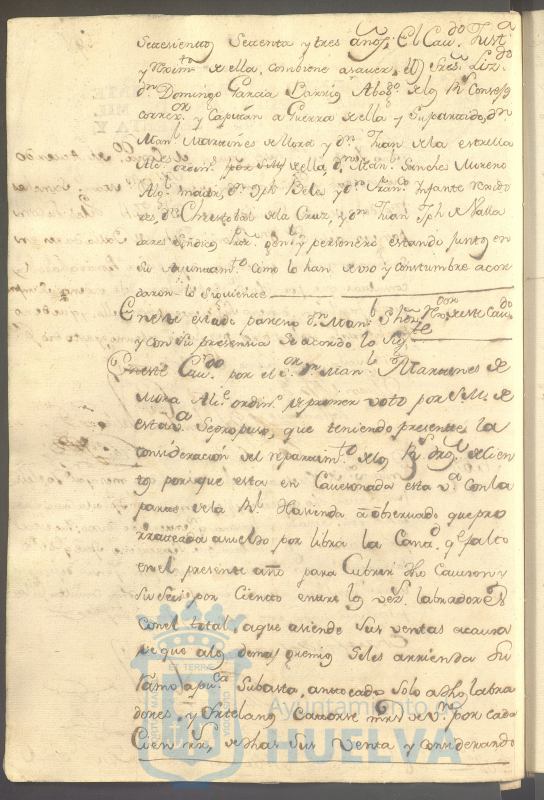 setesientos Setenta y tres años. El Cav.do Just.a
y Reximt.o de ella, combiene a saver, los Sres. Liz.do
Dn. Domingo Garcia Barrio, Abog.o de los Rs. Consejos
correx.or y Capitan a Guerra de ella y su partido, Dn.
Man.l Martines de Mora y Dn. Juan de la estrella
Alc.des ordin.s por S.M. de ella, Dn. Man.l Sanches Moreno
Alg.l maior, Dn. Jph Bela y Dn. Fran.co Infante Rexido
res, Dn. Christobal de la Cruz, y Dn. Juan Jph de Valla
dares sindico Pror. gen.l y personero estando juntos en
su Aiuntam.to como lo han de uso y constumbre acor
daron lo siguiente
En este estado parecio Dn. Man.l Rexor. de este Cav.do
y con su presencia se acordo lo sig.te
En este Cav.do por el Sor. Dn. Man.l Martines de
Mora Alc.e ordin.o de primer voto por S.M. de
esta v.a se propuso, que teniendo presente la
consideracion del repartim.to de los Rs. dros. de Cien
tos porque esta en Cavesonada esta v.a con la
parte de la Rl. Hacienda a observado que pro
rrateada a sueldo por libra la Cant.d q.e falto
en el presente año para Cubrir dho Caveson y
su seis por Ciento entre los vez.s labradores
con el total, a que asiende sus ventas a causa
de que a los demas gremios se les arrienda su
Ramo a pu.ca Subasta, a tocado solo a dho labra
dores, y Ortelanos Catorse mrs. de v.n por cada
Cien rs. de dhas sus Venta y considerando
ET TERRAE
Ayuntamiento de
HUELVA